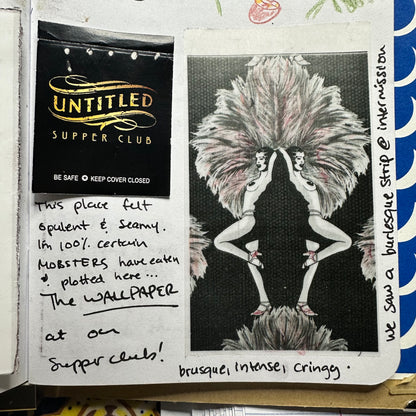 UNTITLED
SUPPER CLUB
BE SAFE ✪ KEEP COVER CLOSED
This place felt
opulent & seamy.
I'm 100% certain
MOBSTERS have eaten
& plotted here...
The WALLPAPER
at our
supper clubs!
brusque, intense, cringey.
we saw a burlesque strip @ intermission